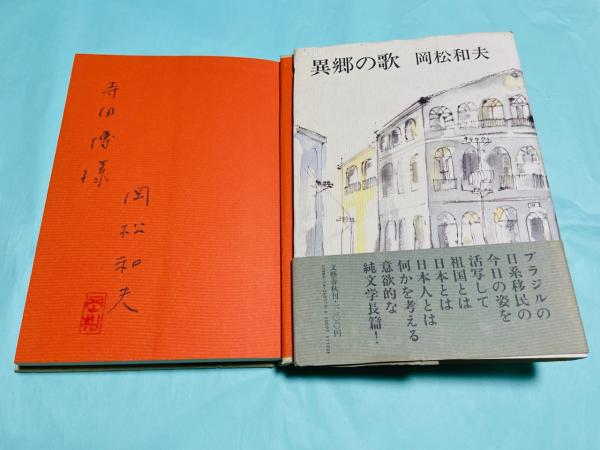 寺田博様
岡松和夫
異郷の歌 岡松和夫
ブラジルの
日系移民の
今日の姿を
活写して
祖国とは
日本とは
日本人とは
何かを考える
意欲的な
純文学長篇!
文藝春秋刊